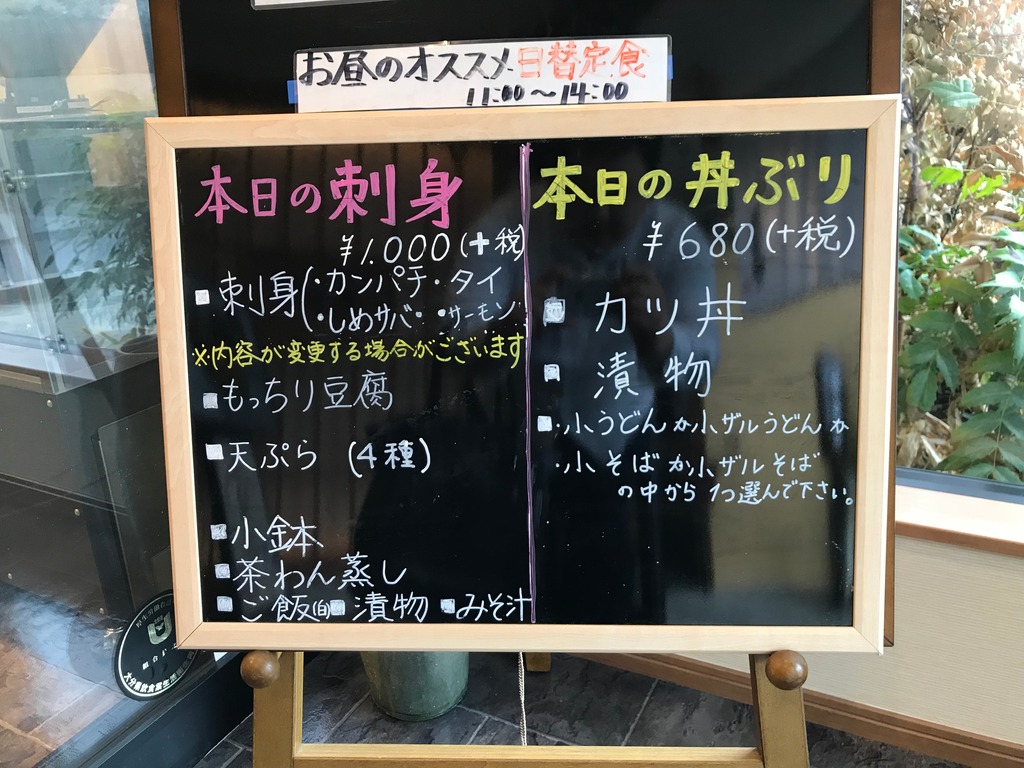 お昼のオススメ 日替定食
11:00～14:00
本日の刺身
¥1.000(+税)
刺身(・カンパチ・タイ
・しめサバ・・サーモン
※内容が変更する場合がございます
もっちり豆腐
天ぷら (4種)
小鉢
茶わん蒸し
ご飯(白) 漬物 みそ汁
本日の丼ぶり
¥680(+税)
カツ丼
漬物
・小うどんか小ザルうどんか
・小そばか小ザルそば
の中から1つ選んで下さい。